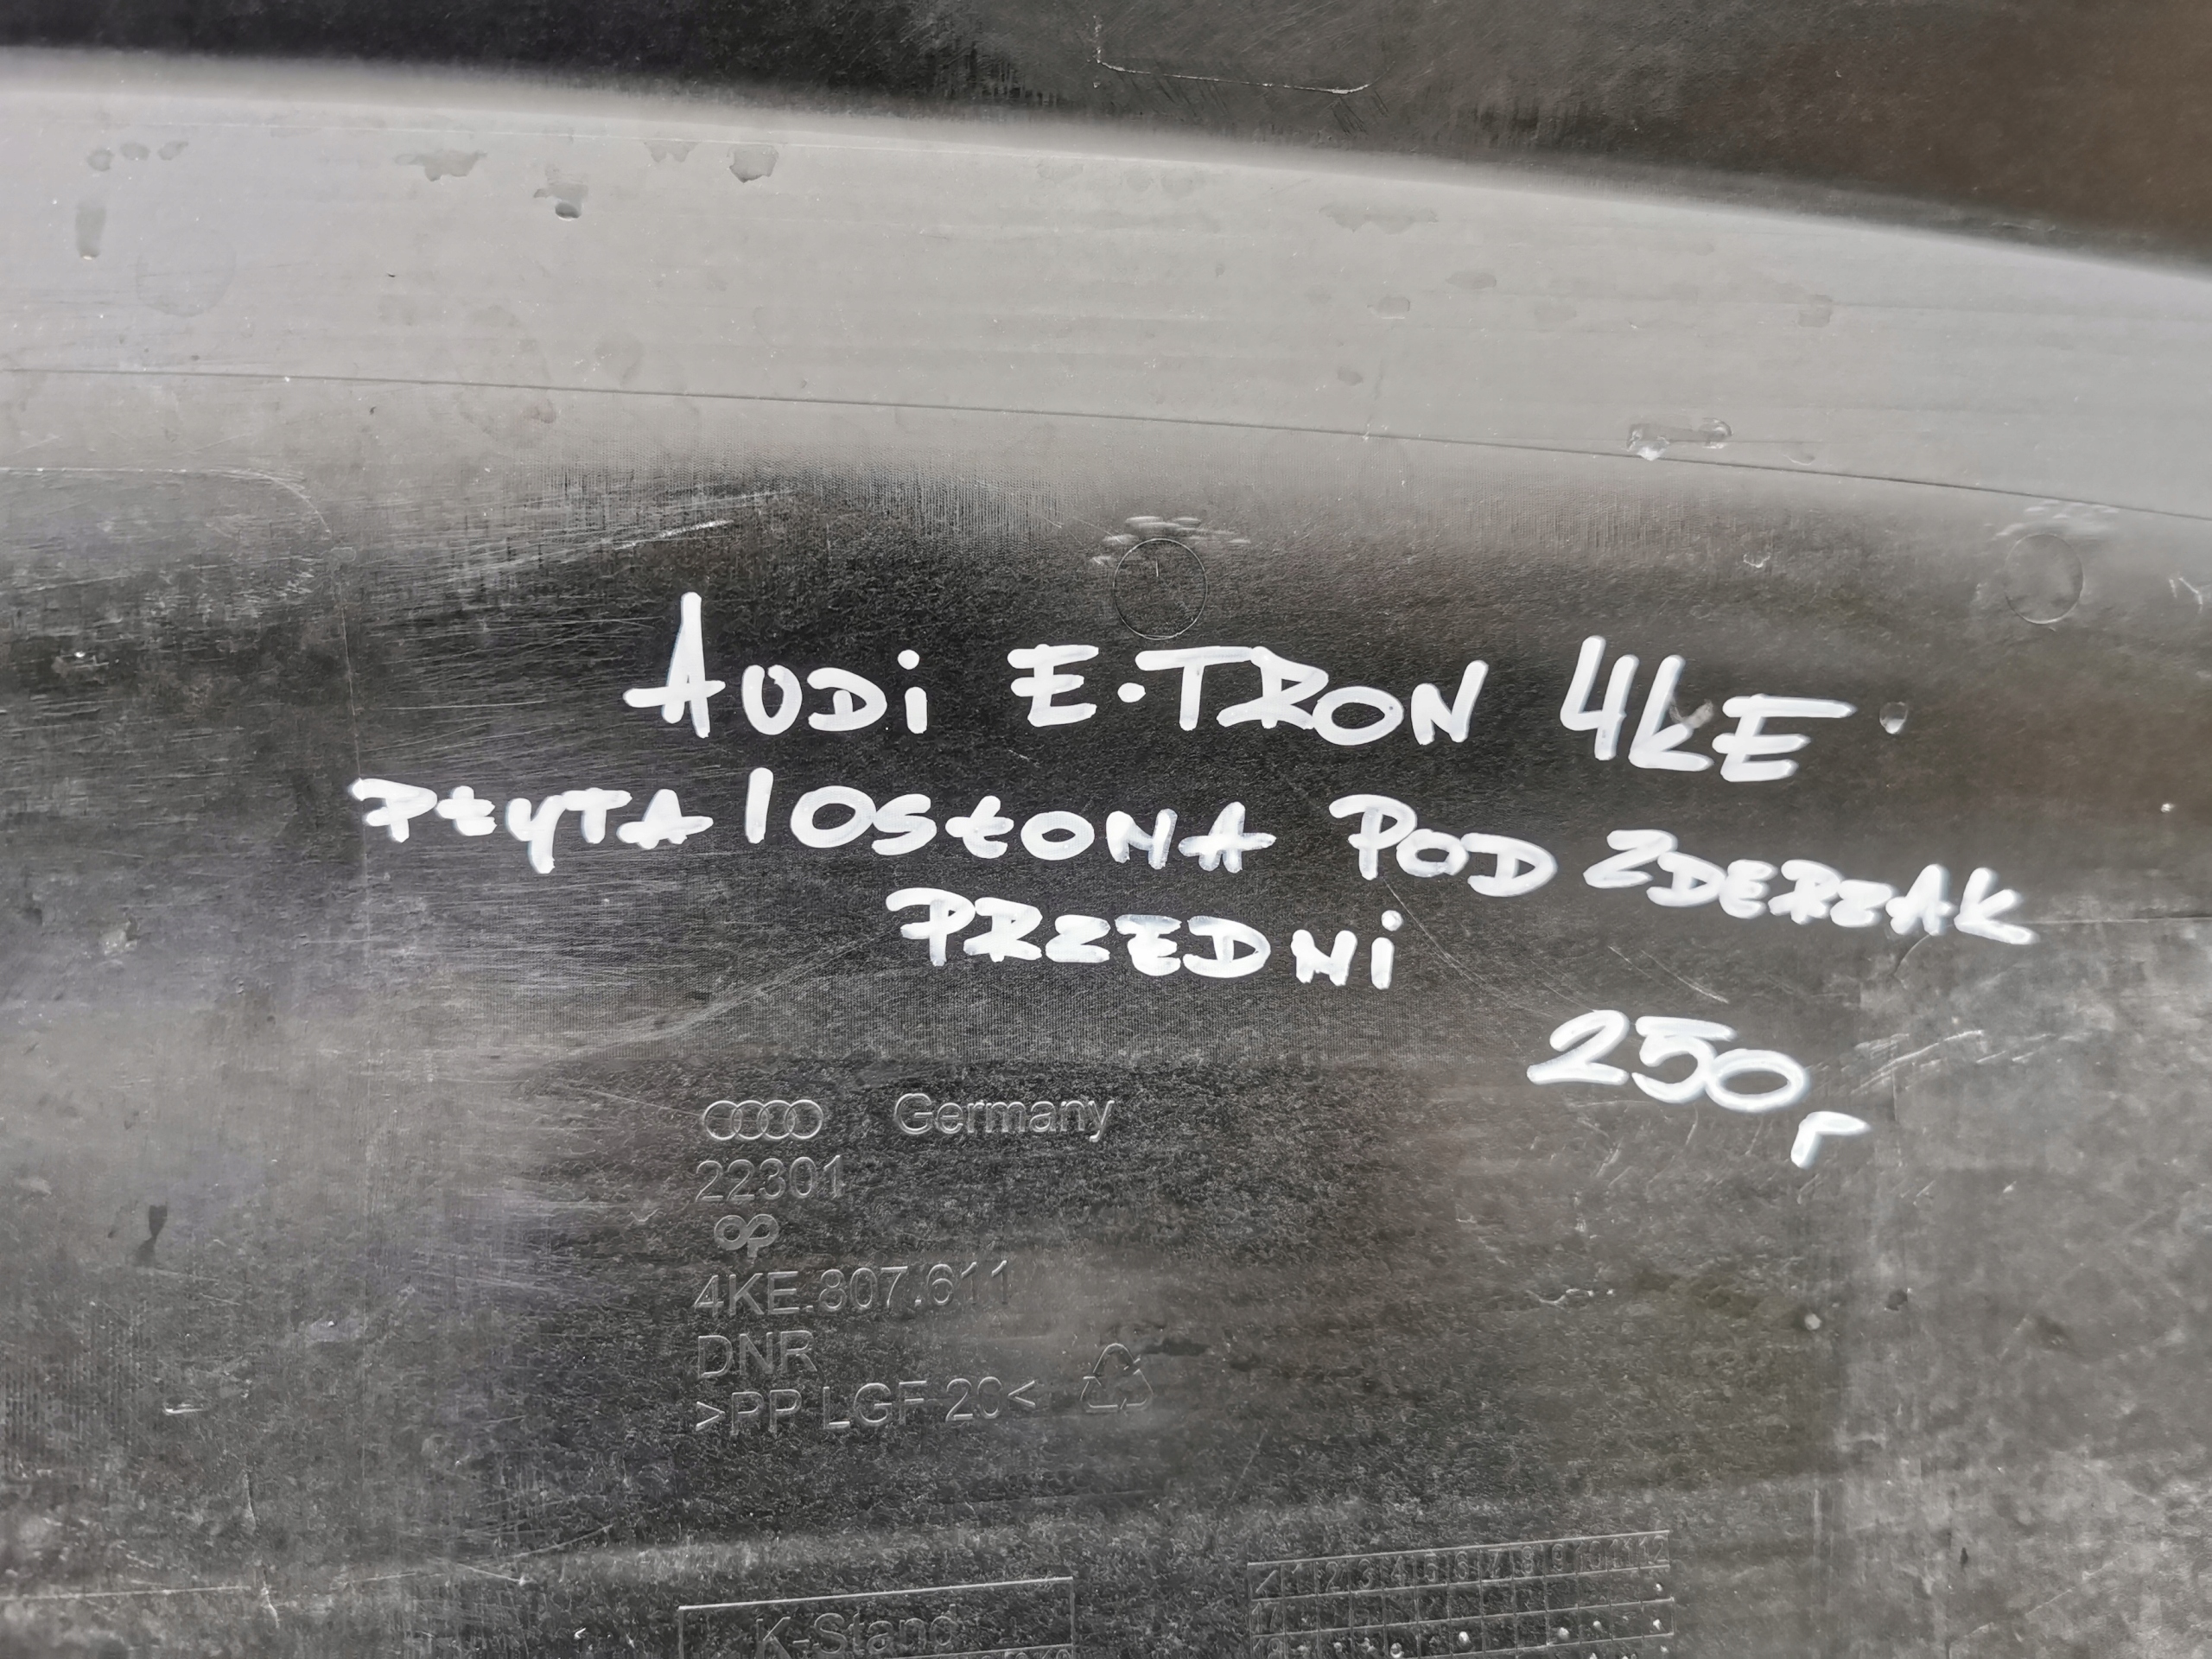 AUDi E-TRON 4KE
PŁYTA/OSŁONA POD ZDERZAK
PRZEDNi
250,-
Germany
22301
4KE.807.611
DNR
>PP LGF 20<
1 2 3 4 5 6 7 8 9 10 11 12
17
K-Stand